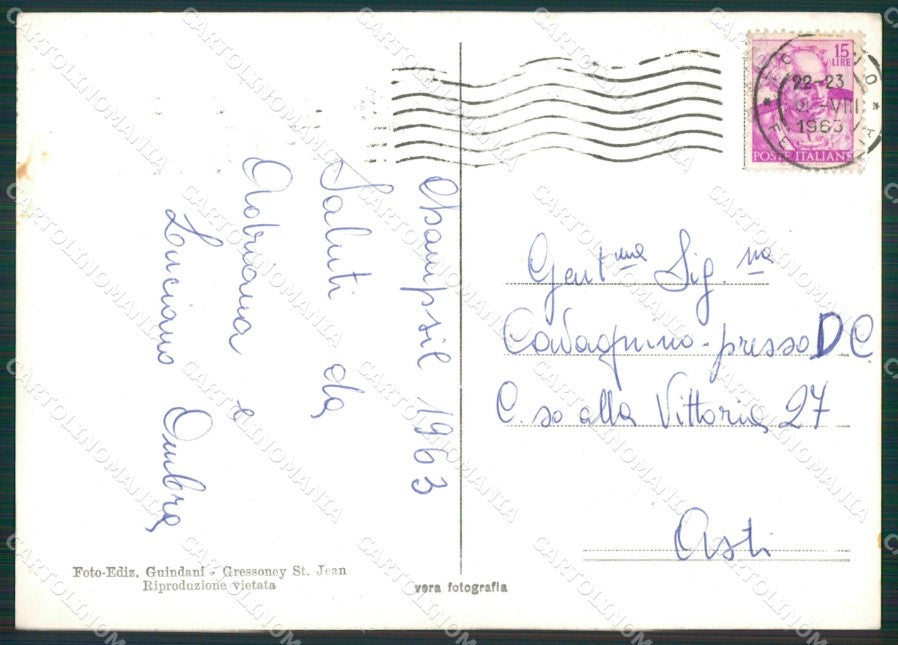 Champsil 1963
Saluti da
Adriana e
Luciano Ombra
15
LIRE
22-23
VIII
1963
POSTE ITALIANE
Gent.ma Sig.na
Cavagnino - presso D.C.
C.so alla Vittoria 27
Asti
Foto-Ediz. Guindani - Gressoney St. Jean
Riproduzione vietata
vera fotografia
CARTOLINOMANIA